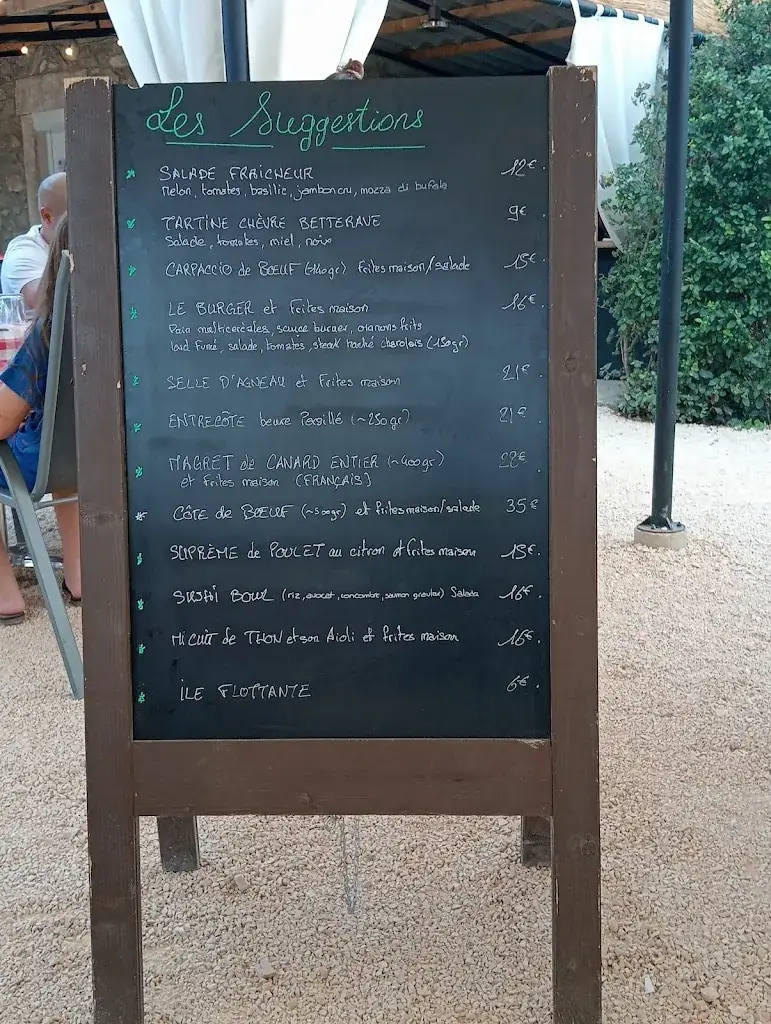 Les Suggestions
SALADE FRAICHEUR 12€.
Melon, tomates, basilic, jambon cru, mozza di bufala
TARTINE CHÈVRE BETTERAVE 9€.
Salade, tomates, miel, noix
CARPACCIO de BŒUF (140gr) frites maison/salade 15€.
LE BURGER et Frites maison 16€.
Pain multicéréales, sauce burger, oignons frits
lard Fumé, salade, tomates, steak haché charolais (150gr)
SELLE D'AGNEAU et Frites maison 21€.
ENTRECÔTE beure Persillé (~250gr) 21€.
MAGRET de CANARD ENTIER (~400gr) 22€.
et Frites maison (FRANÇAIS)
CÔTE de BŒUF (~500gr) et frites maison/salade 35€
SUPRÈME de POULET au citron et frites maison 15€.
SUSHI BOWL (riz, avocat, concombre, saumon gravlax) Salade 16€.
MI CUIT de THON et son Aioli et frites maison 16€.
ILE FLOTTANTE 6€.